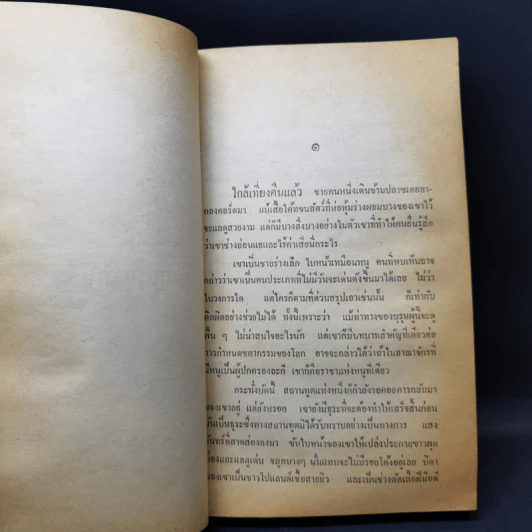 ๑
ใกล้เที่ยงคืนแล้ว ชายคนหนึ่งเดินข้ามปลาซเดอลา-
คองคอร์ดมา แม้เสื้อโค้ทขนสัตว์ที่ห่อหุ้มร่างผอมบางของเขาไว้
จะแลดูสวยงาม แต่ก็มีบางสิ่งบางอย่างในตัวเขาที่ทำให้คนอื่นรู้สึก
ว่าเขาช่างอ่อนแอและไร้ค่าเสียนี่กระไร
เขาเป็นชายร่างเล็ก ใบหน้าเหมือนหนู คนที่พบเห็นอาจ
กล่าวว่าเขาเป็นคนประเภทที่ไม่มีวันจะเด่นดังขึ้นมาได้เลย ไม่ว่า
ในวงการใด แต่ใครก็ตามที่ด่วนสรุปเอาเช่นนั้น ก็เท่ากับ
คิดผิดอย่างช่วยไม่ได้ ทั้งนี้เพราะว่า แม้ท่าทางของบุรุษผู้นี้จะดู
พื้น ๆ ไม่น่าสนใจอะไรนัก แต่เขาก็มีบทบาทสำคัญที่เดียวต่อ
การกำหนดชะตากรรมของโลก อาจจะกล่าวได้ว่าถ้าในอาณาจักรที่
มีหนูเป็นผู้ปกครองละก็ เขาก็คือราชาแห่งหนูทีเดียว
กระทั่งบัดนี้ สถานทูตแห่งหนึ่งก็กำลังรอคอยการกลับมา
ของเขาอยู่ แต่ยังหรอก เขายังมีธุระที่จะต้องทำให้เสร็จสิ้นก่อน
อันเป็นธุระซึ่งทางสถานทูตมิได้รับทราบอย่างเป็นทางการ แสง
จันทร์ที่สาดส่องลงมา ขับใบหน้าของเขาให้เปล่งประกายขาวผุด
ผ่องและแลดูเด่น จมูกบางๆ นั้นแทบจะไม่มีรอยโค้งอยู่เลย บิดา
ของเขาเป็นชาวโปแลนด์เชื้อสายยิว และเป็นช่างตัดเสื้อฝีมือดี